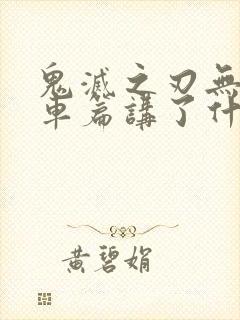 鬼滅之刃無
車篇講了什
黃碧娟